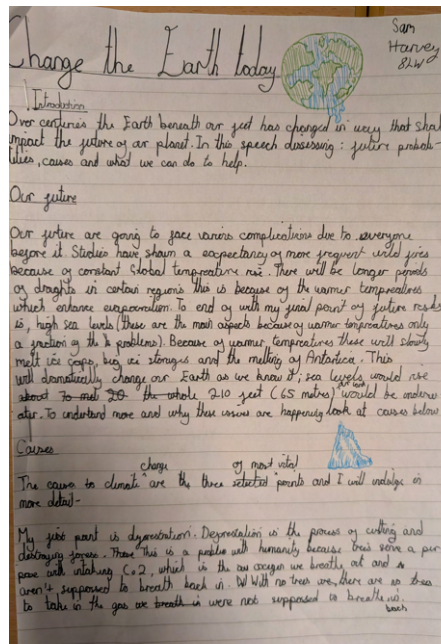 Change the Earth today
Sam
Harvey
8LW
Introduction
Over centuries the Earth beneath our feet has changed in ways that shall
impact the future of our planet. In this speech discussing: future probabi-
lities, causes and what we can do to help.
Our future
Our future are going to face various complications due to everyone
before it. Studies have shown a expectancy of more frequent wild fires
because of constant Global temperature rise. There will be longer periods
of draughts in certain regions this is because of the warmer tempreatures
which enhance evaporation. To end of with my final point of future risks
is, high sea levels (these are the main aspects because of warmer tempreatures only
a fraction of the problems). Because of warmer tempreatures these will slowly
melt ice caps, big ice storages and the melting of Antartica. This
will dramatically change our Earth as we know it; sea levels would rise
210 feet (65 metres) our land would be underw
ater. To understand more and why these issues are happening look at causes below
Causes
The causes to climate change are the three of most vital points and I will indulge in
more detail-
My first point is deforestation. Deforestation is the process of cutting and
destroying forests. This is a problem with humanity because trees serve a pur
pose with intaking Co2, which is the oxygen we breathe out and
aren't supposed to breath back in. With no trees there are no trees
to take in the gas we were not supposed to breathe in.
back